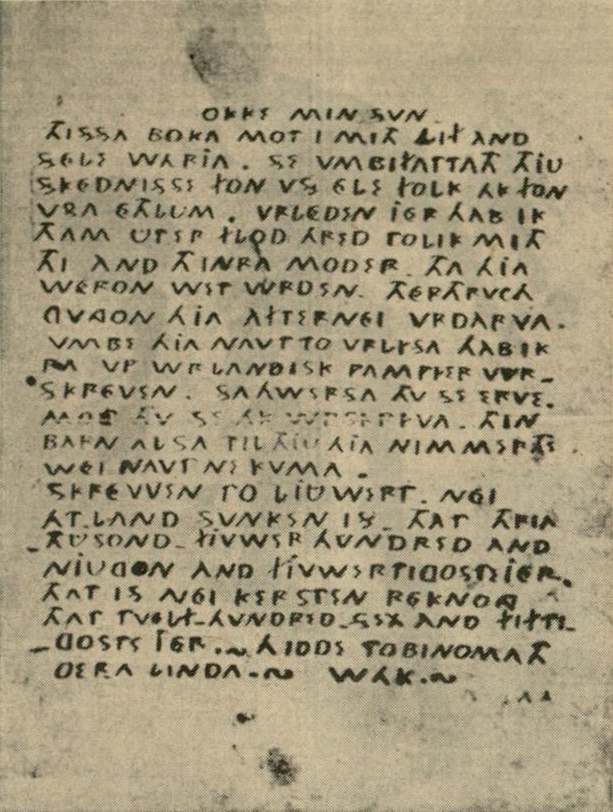 OKKE MIN SVN
THISSA BOKA MOT I MITH LIF AND
SELE WARIA. SE VMBIFATTATH THJU
SKEDNISSE FON VS ELE FOLK AK FON
VSA ETHLUM. VRLEDEN JER HAB IK
THAM UTER FLOD HRED TOLIK MITH
THI AND THINRA MODER. THA HJA
WERON WET WRDEN. THERTHRVCH
GVNGON HJA AFTERNEI VRDARVA.
VMBE HJA NAVT TO VRLYSA HAB IK
RA VP WRLANDISK PAMPYER WR-
SKREVEN. SAHWERSA THV SE ERVE.
MOT THV SE AK WRSKRYVA. THIN
BARN ALSA TIL THJU HJA NIMMERTHE
WEI NAVT NE KVMA.
SKREVVEN TO LJUWERT. NEI
ATLAND SVNKEN IS. THAT THRIA
THUSOND. FJVWER HVNDRED AND
NJUGON AND FJVWERTIGOSTE JER.
THAT IS NEI KERSTEN REKNONG
THAT TVELF-HVNDRED SEX AND FIFTI-
GOSTE JER.~ HIDDE TOBINOMATH
OERA LINDA.~ WAK.~